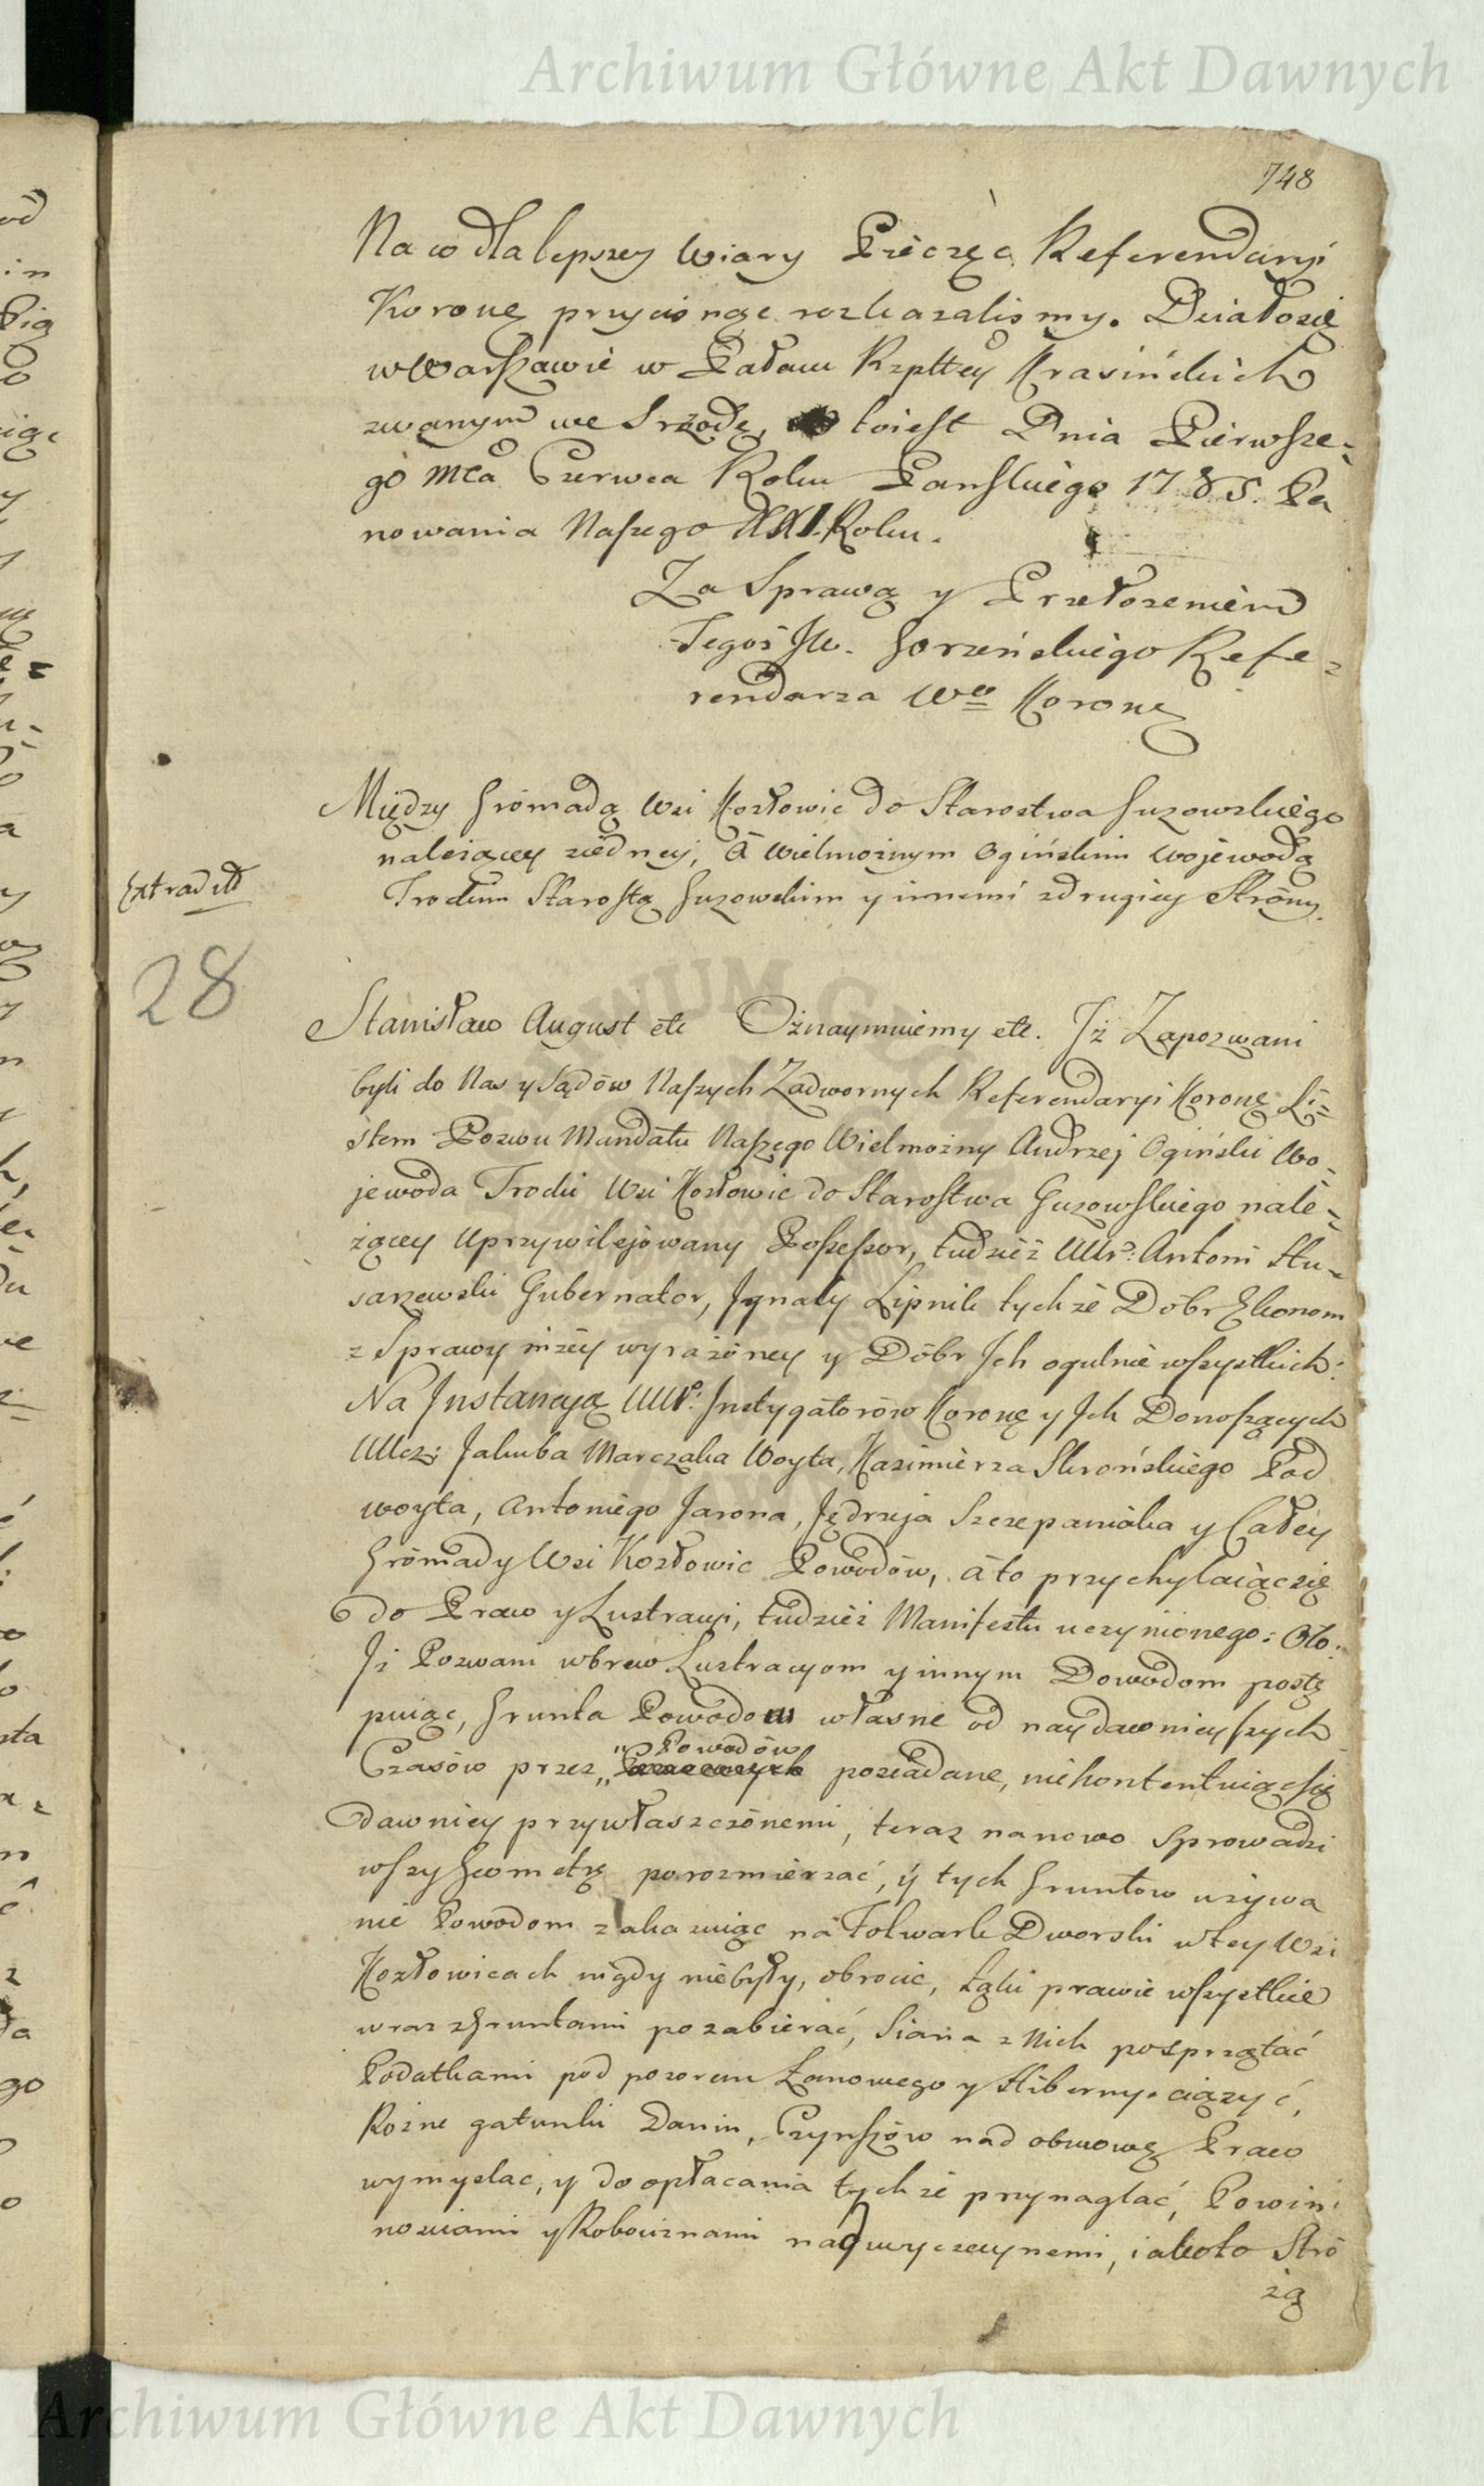 Archiwum Główne Akt Dawnych
748
Na co dla lepszey Wiary Pieczęc Referendaryi
Koronę przycisnąc rozkazalismy. Działosię
w Warszawie w Pałacu Rzpltey Krasińskich
zwanym we Srzodę, toiest Dnia Pierwsze-
go Mca Czerwca Roku Panskiego 1785. Pa
nowania Naszego XXI. Roku.
Za Sprawą y Przełożeniem
Tegoż JW. Gorzeńskiego Refe-
rendarza Wo Koronę
Między Gromadą Wsi Kozłowic do Starostwa Guzowskiego
należącey ziedney, A Wielmożnym Ogińskim Wojewodą
Trockim Starostą Guzowskim y innemi zdrugiey Strony.
Extradit
28
Stanisław August etc Oznaymuiemy etc. Iż Zapozwani
byli do Nas y Sądów Naszych Zadwornych Referendaryi Koronę Li-
stem Pozwu Mandatu Naszego Wielmożny Andrzej Ogiński Wo-
jewoda Trocki Wsi Kozłowic do Starostwa Guzowskiego nale-
żącey Uprzywilejowany Possessor, tudzież Ur: Antoni Stu-
sarzewski Gubernator, Jgnaty Lipnik tychże Dóbr Ekonom
z Sprawy niżey wyrażoney y Dóbr Jch ogulnie wszystkich:
Na Jnstancyą UUr: Jnstygatorów Koronę y Jch Donoszących
UUcz: Jakuba Marczaka Woyta, Kazimierza Skrońskiego Pod
woyta, Antoniego Jarona, Jędrzeja Szczepaniaka y Całey
Gromady Wsi Kozłowic Powodów, a to przychylaiąc się
do Praw y Lustracyi, tudzież Manifestu uczynionego: Oto:
Jż Pozwani wbrew Lustracyom y innym Dowodom postę
puiąc, Grunta Powodom własne od naydawnieyszych
Czasów przez Powodów posiadane, niekontentuiąc się
dawniey przywłaszczonemi, teraz nanowo Sprowadzi
wszy Geometrę porozmierzać, y tych Gruntow używa
nie Powodom zakazuiąc na Folwark Dworski w tey Wsi
Kozłowicach nigdy niebyły, obrocic, Łąki prawie wszystkie
wraz z Gruntami pozabierać, Siana z Nich posprzątać
Podatkami pod pozorem Łanowego y Hiberny ciązyć,
Rożne gatunki Danin, Czynszów nad obmowę Praw
wymyslac, y do opłacania tychże przynaglać, Powin:
nosciami y Robociznami nadzwyczaynemi, iakoto Stró
żą
Archiwum Główne Akt Dawnych